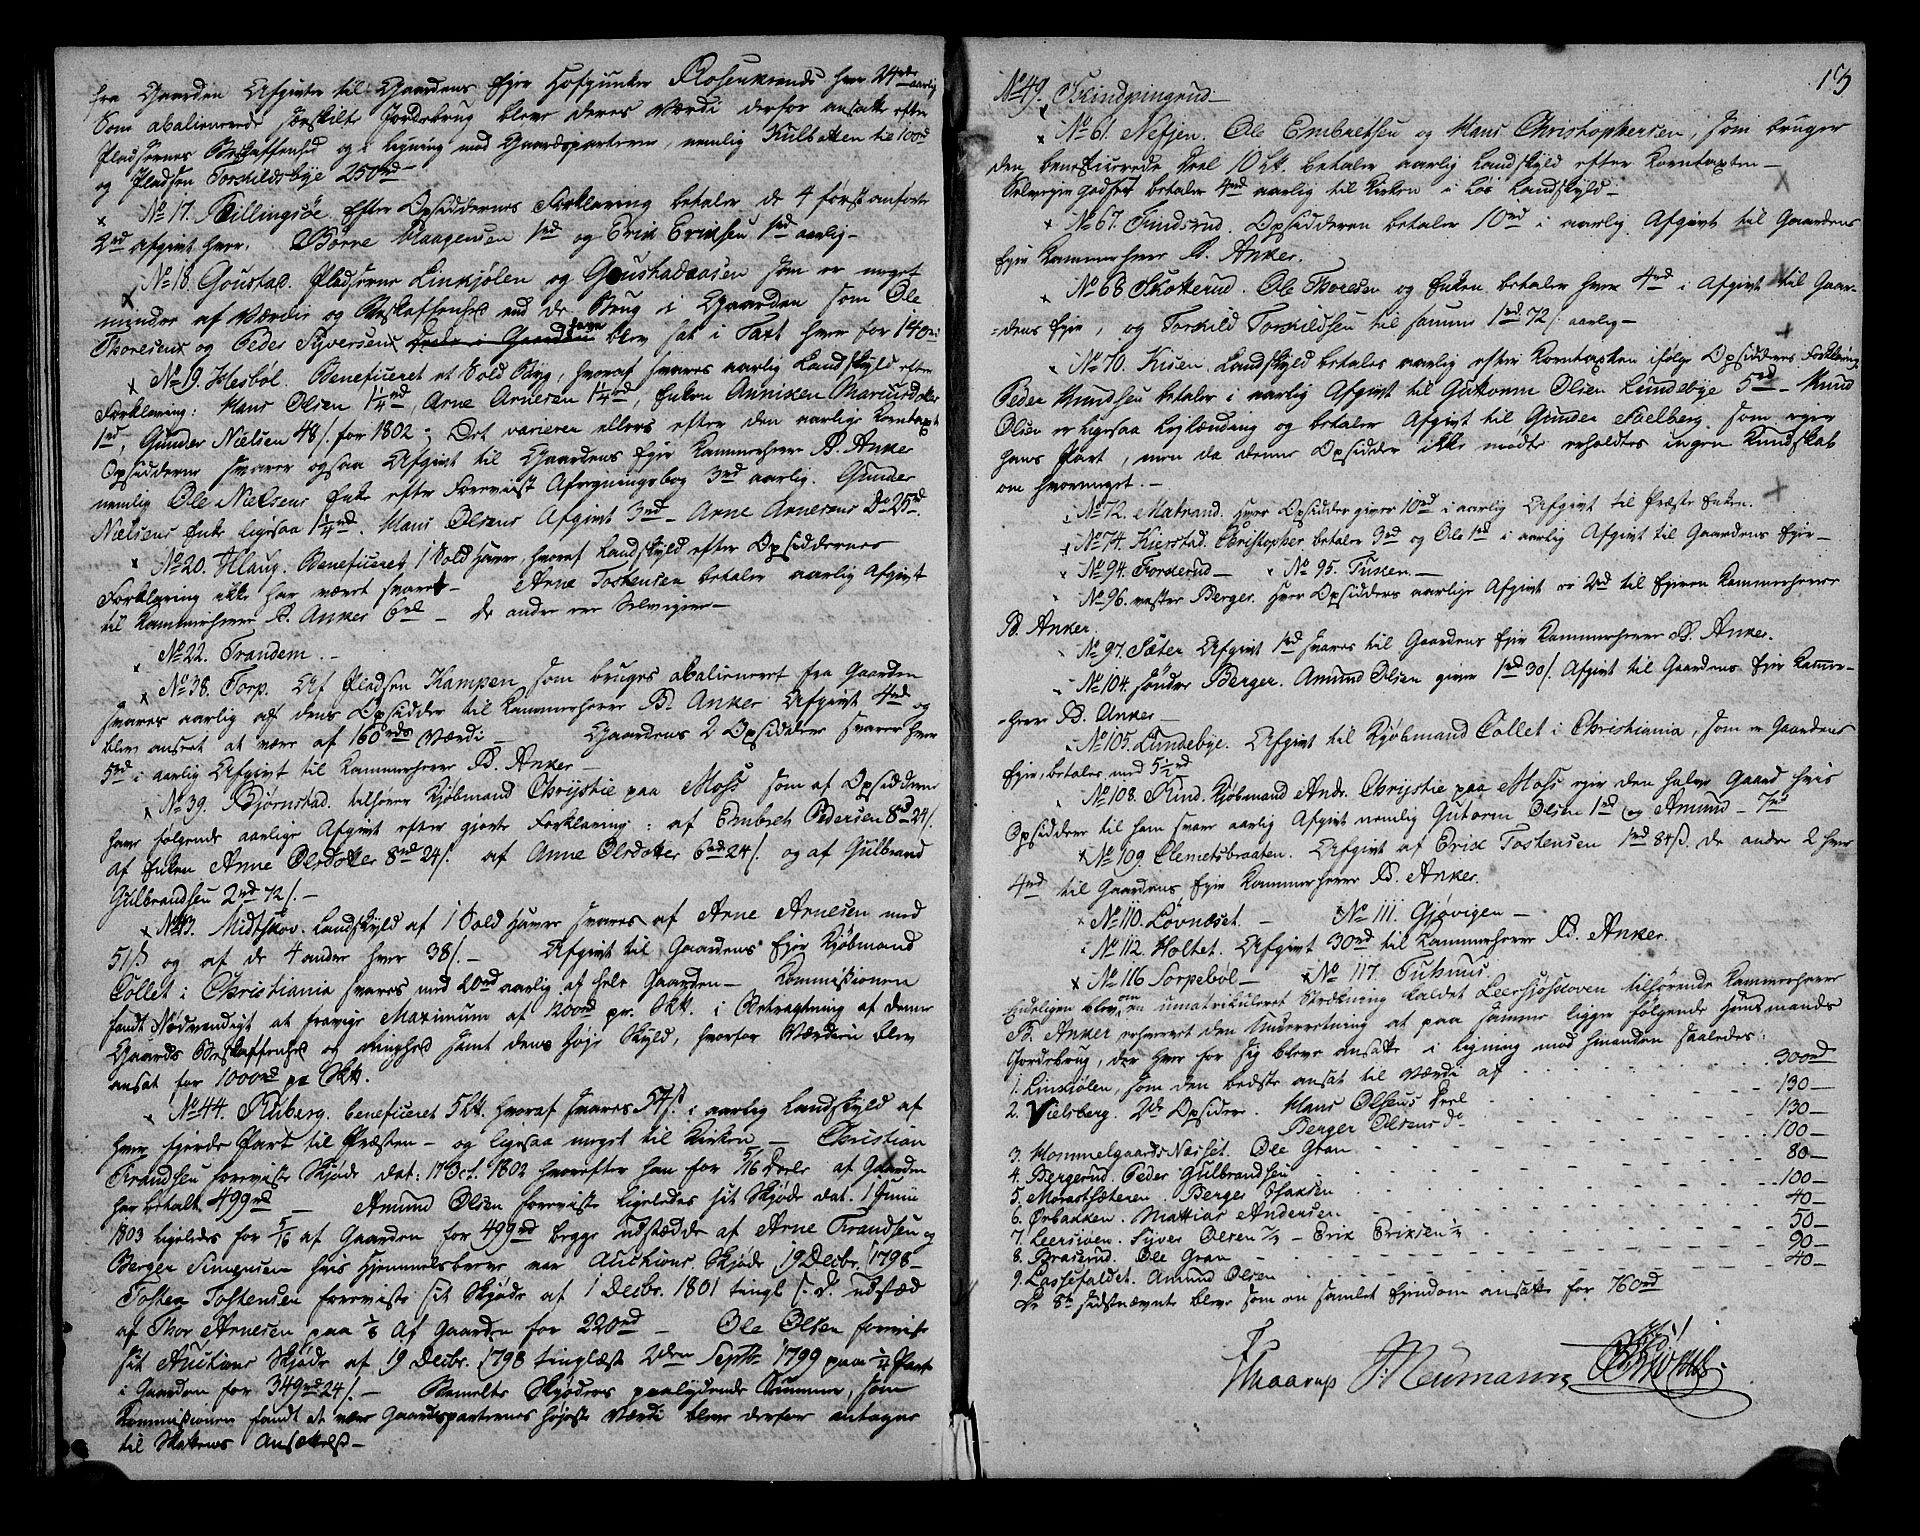 fra Gaarden Afgivter til Gaardens Ejer Hofjunker Rosenkrands hver 24rd aarlig
Som abalienerede særskilte Jordebrug bleve deres Værdi derfor ansatte efter
Pladsernes Beskaffenhed og i Ligning med Gaardsparterne, nemlig Kulbakken til 100rd
og Pladsen Torskildsbye 250rd
× No 17. Killingsöe. Efter Opsiddernes Forklaring betaler de 4 først anførte
2rd Afgivt hver. Børre Haagensen 1rd og Erik Eriksen 1rd aarlig -
× No 18. Goustad. Pladserne Linkjølen og Goustadaasen som er noget
mindre af Værdie og Beskaffenhed end de Brug i Gaarden som Ole
Thoresen og Peder Syversen have blev sat i Taxt hver for 140rd
× No 19. Hesböl. Beneficeret et Sold Byg, hvoraf svares aarlig Landskyld efter
Forklaring: Hans Olsen 1¼rd, Arne Arnesen 1¼rd, Enken Anniken Mariusdotter
1rd Gunder Nielsen 48 s. for 1802; Det varierer ellers efter den aarlige Korntaxt
Opsidderne svarer ogsaa Afgivt til Gaardens Ejer Kammerherre B. Anker
nemlig Ole Nielsens Enke efter foreviist Afregningsbog 3rd aarlig. Gunder
Nielsens Enke ligesaa 1¼rd. Hans Olsens Afgivt 3rd - Arne Arnesens Do 25rd
× No 20. Haug. Beneficeret 1 Sold Havre hvoraf Landskyld efter Opsiddernes
Forklaring ikke har været svaret - Arne Tostensen betaler aarlig Afgivt
til Kammerherre B. Anker 6rd - De andre ere Selveiere -
× No 22. Trandem. -
× No 38. Torp. Af Pladsen Kampen, som bruges abalieneret fra Gaarden
svares aarlig af dens Opsidder til Kammerherre B. Anker Afgivt 4rd og
blev anseet at være af 160rds Værdi - Gaardens 2 Opsiddere svarer hver
5rd i aarlig Afgivt til Kammerherre B. Anker -
× No 39. Bjørnstad. tilhører Kjøbmand Chrystie paa Moss som af Opsidderne
have følgende aarlige Afgivt efter gjorte Forklaring: af Embret Pedersen 8rd 24 s.
af Enken Anne Olsdotter 8rd 24 s. af Anne Olsdotter 6rd 24 s. og af Gulbrand
Gulbrandsen 2rd 72 s. -
× No 43. Midtskov. Landskyld af 1 Sold Havre svares af Arne Arnesen med
51 s. og af de 4 andre hver 38 s. - Afgivt til Gaardens Ejer Kjøbmand
Collet i Christiania svares med 20rd aarlig af hele Gaarden - Kommissionen
fandt Nødvendigt at fravige Maximum af 1200rd pr. Skk. i Betragtning af denne
Gaards Beskaffenhed og Ringhed samt dens høje Skyld, hvorfor Værdien blev
ansat for 1000rd pr Skk.
× No 44. Ruberg. beneficeret 5 Lk. hvoraf svares 54 s. i aarlig Landskyld af
hver fjerde Part til Præsten - og ligesaa meget til Kirken - Christian
Trandsen foreviste Skjøde dat. 17 Oct. 1802 hvorefter han for 5/16 Deele af Gaarden
har betalt 499rd - Amund Olsen foreviste ligeledes sit Skjøde dat. 1 Junii
1803 ligeledes for 5/16 af Gaarden for 499rd begge udstædde af Arne Trandsen og
Berger Simensen hvis Hjemmelsbrev var Auctions Skjøde 19 Decbr. 1798 -
Tosten Tostensen foreviste sit Skjøde af 1 Decbr. 1801 tingl. s. D. udstæd
af Thor Arnesen paa ⅛ af Gaarden for 220rd - Ole Olsen foreviste
sit Auctions Skjøde af 19 Decbr. 1798 tinglæst 2den Septbr 1799 paa ¼ Part
i Gaarden for 349rd 24 s. - Bemelte Skjøders paalydende Summer, som
Kommissionen fandt at være Gaardsparternes højeste Værdi blev derfor antagne
til Skattens Ansættelse -
13
No 49. Skindpungrud -
× No 61. Nefjen. Ole Embretsen og Hans Christophersen, som bruger
den beneficerede Deel 10 Lk. betaler aarlig Landskyld efter Korntaxten -
Selveier Godset betaler 4rd aarlig til Kirken i Løs Landskyld -
× No 67. Tindsrud. Opsidderen betaler 10rd i aarlig Afgivt til Gaardens
Ejer Kammerherre B. Anker.
× No 68 Skotterud. Ole Thoresen og Enken betaler hver 4rd i Afgivt til Gaar-
=dens Ejer, og Torskild Torskildsen til samme 1rd 72 s. aarlig -
× No 70. Kisen. Landskyld betales aarlig efter Korntaxten ifølge Opsiddernes Forklaring
Peder Knudsen betaler i aarlig Afgivt til Guttorm Olsen Lundebye 5rd - Knud
Olsen er ligesaa Leylænding og betaler Afgivt til Gunder Saelberg, som ejer
hans Part, men da denne Opsidder ikke mødte erholdtes ingen Kundskab
om hvormeget. -
× No 72. Matrand. hver Opsidder giver 10rd i aarlig Afgivt til Præste Enken.
× No 74. Kierstad. Christopher betaler 3rd og Ole 1rd i aarlig Afgivt til Gaardens Ejer -
× No 94. Forkerud - × No 95. Tusken. -
× No 96. vestre Berger. Hver Opsidders aarlige Afgivt er 2rd til Ejeren Kammerherre
B. Anker.
× No 97. Sæter. Afgivt 1rd svares til Gaardens Ejer Kammerherre B. Anker.
× No 104. søndre Berger. Amund Olsen giver 1rd 30 s. Afgivt til Gaardens Ejer Kammer-
=herre B. Anker -
× No 105. Lundebye. Afgivt til Kjøbmand Collet i Christiania, som er Gaardens
Ejer, betales med 5½rd
× No 108. Rind. Kjøbmand Andr. Chrystie paa Moss ejer den halve Gaard hvis
Opsiddere til ham svarer aarlig Afgivt nemlig Gutorm Olsen 1rd og Amund - 7rd
× No 109. Clemetsbraaten. Afgivt af Erik Tostensen 1rd 84 s. de andre 2 hver
4rd til Gaardens Ejer Kammerherre B. Anker.
× No 110. Lövnæset. - × No 111. Gjøvigen -
× No 112. Holtet. Afgivt 30rd til Kammerherre B. Anker.
× No 116 Sorpebøl - × No 117. Tuhnus
Endeligen blev om en umatrikuleret Strekning kaldet Leersjøskoven tilhørende Kammerherre
B. Anker erhvervet den Underretning at paa samme ligger følgende Huusmands
Jordebrug, der hver for sig bleve ansatte i Ligning med hinanden saaledes:
1. Linkiølen, som den bedste ansat til Værdi af - - - 300rd
2. Vielsberg. 2de Opsidere. Hans Olsens Deel - - - 130 -
Berger Olsens do - - - 130 -
3. Hommelgaards Næsset. Ole Gran - - - 100 -
4. Bergerud. Peder Gulbrandsen - - - 80 -
5. Morastsæteren. Berger Isaksen - - - 100 -
6. Ørbakken. Mattias Andersen - - - 40 -
7. Leersöen. Syver Olsen ½ - Erik Eriksen ½ - - - 50 -
8. Braserud. Ole Gran - - - 90 -
9. Lassefaldet. Amund Olsen - - - 40 -
De 8te sidstnævnte bleve som en samlet Ejendom ansatte for 760rd
Thaarup Neumann